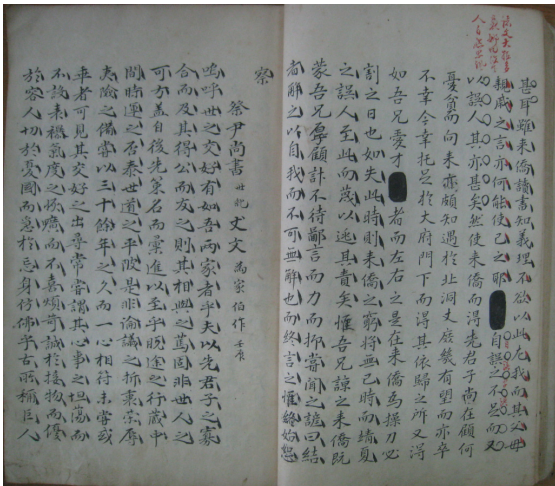 甚耳雖來僑讀書知義理不欲以此尤我而其父母
親戚之言亦何能使已之耶自誤之不足而又
以誤人其亦甚矣然使來僑而得先君子尚在顧何
憂貧而向來亦頗知遇於北洞丈庶幾有望而亦卒
不幸今幸托足於大府門下而得其依歸之所又得
如吾兄愛才者而左右之是在來僑為操刀必
割之日也如失此時則來僑之窮將無已時而繡夏
之誤人至此而蔑以逃其責矣惟吾兄諒之來僑既
蒙吾兄厚顧計不待鄙言而力而抑嘗聞之諺曰結
者解之以自我而不可無辭也而終言之惟終始恕
察
祭尹尚書世紀丈文為家伯作壬辰
嗚呼世之交好有如吾兩家者乎夫以先君子之寡
合而及其得公而友之則其相與之篤固非世人之
可方蓋自後先策名而彙進以至乎晚途之行藏中
間時運之否泰世道之平陂是非論議之折衷榮辱
夷險之備嘗以三十餘年之久而一心相符未嘗或
乖者可見其交好之出尋常窃謂其心事之坦蕩而
不設機氣度之恢曠而不喜煩苛誠於接物而優
於容人切於憂國而急於忘身彷彿乎古所稱巨人